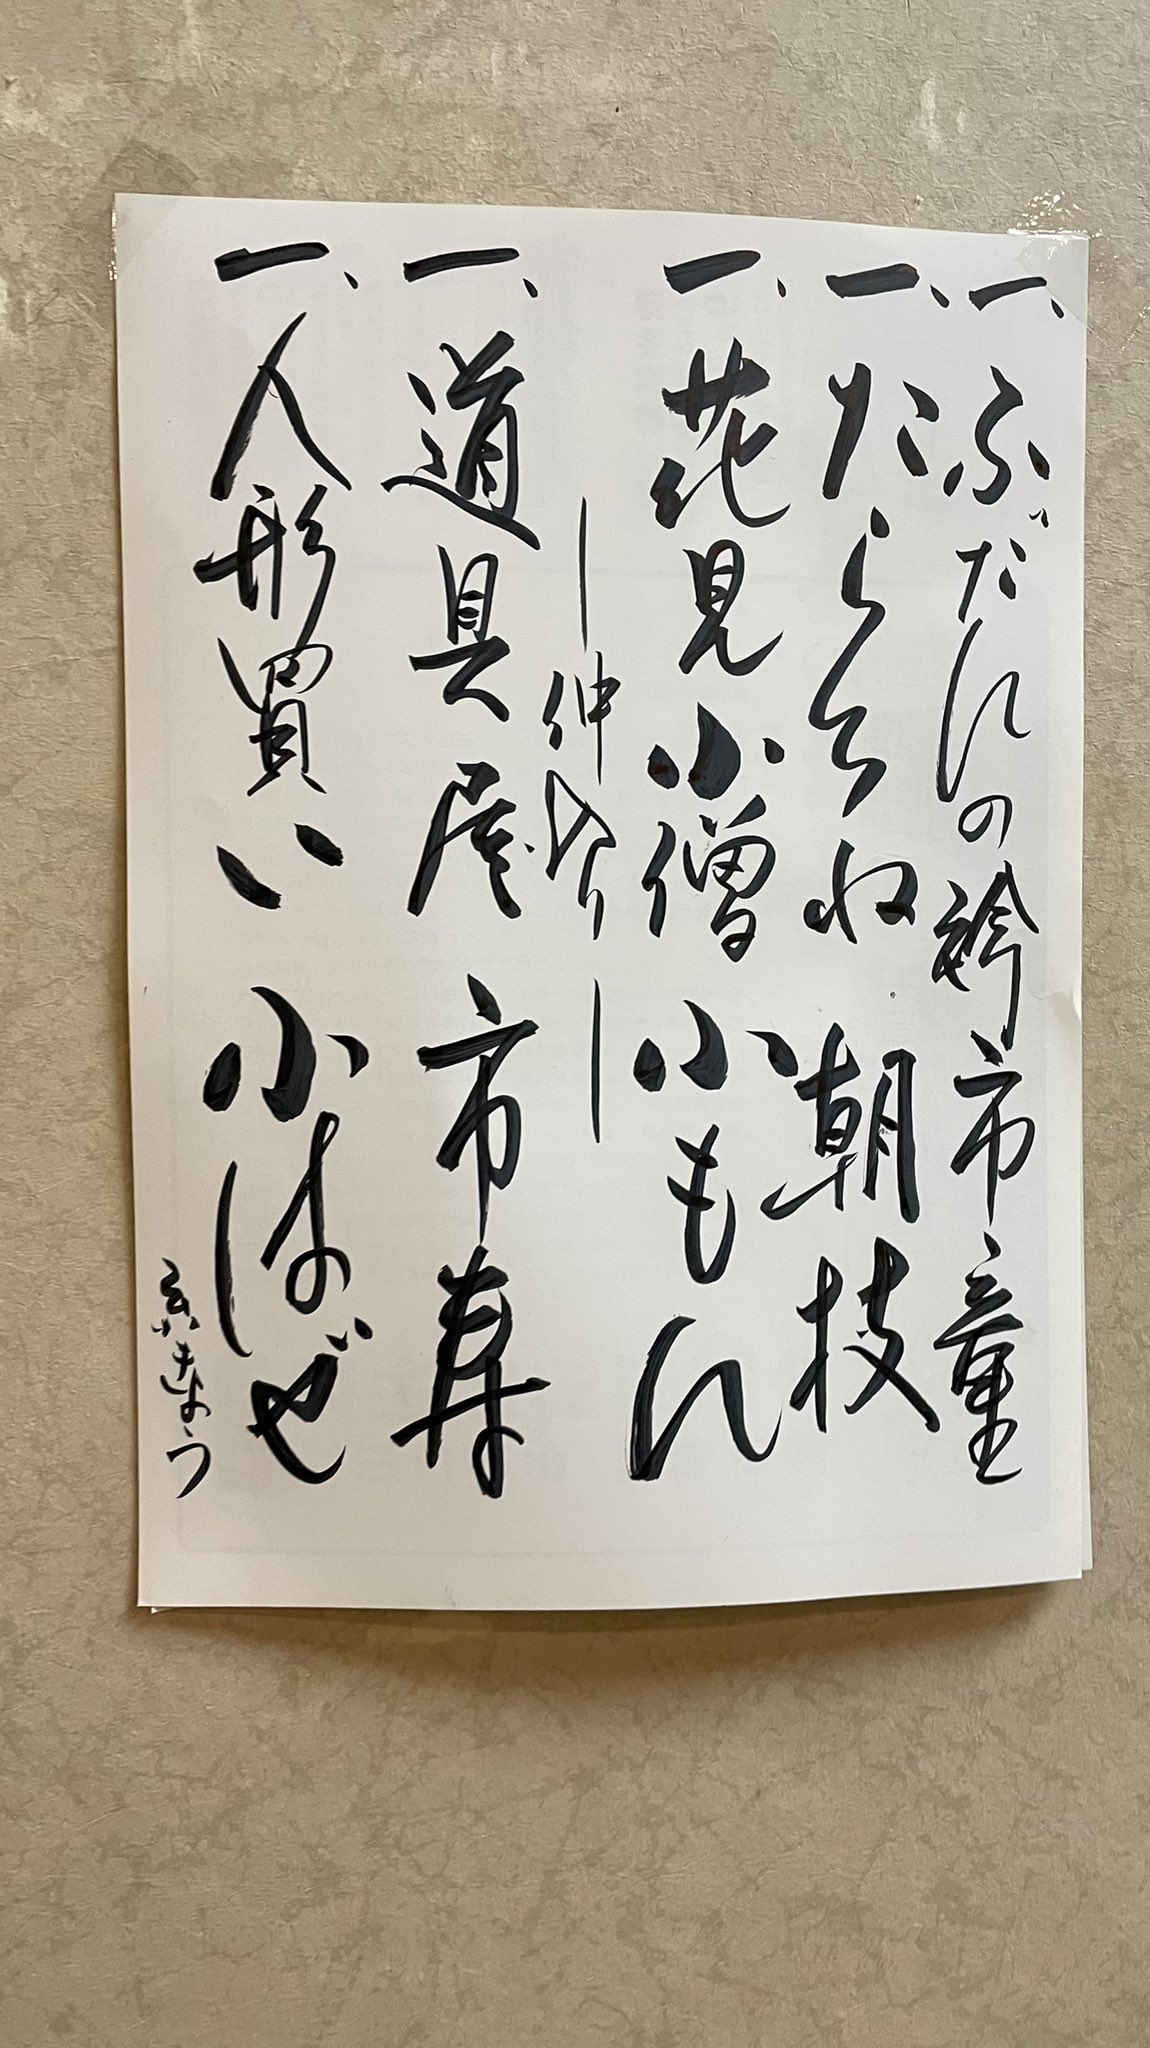 一、ふだんの袴 市童
一、たらちね 朝枝
一、花見小僧 小もん
―仲入り―
一、道具屋 市寿
一、人形買い 小はぜ